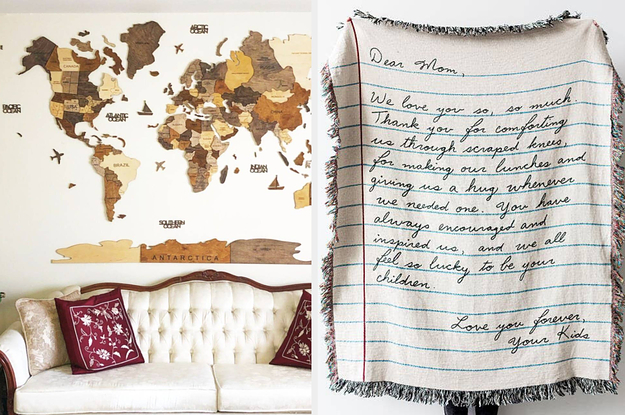 ARCTIC
OCEAN
PACIFIC
OCEAN
ATLANTIC
OCEAN
BRAZIL
INDIAN
OCEAN
SOUTHERN
OCEAN
ANTARCTICA
Dear Mom,
We love you so, so much.
Thank you for comforting
us through scraped knees,
for making our lunches and
giving us a hug whenever
we needed one. You have
always encouraged and
inspired us, and we all
feel so lucky to be your
children.
Love you forever,
Your Kids